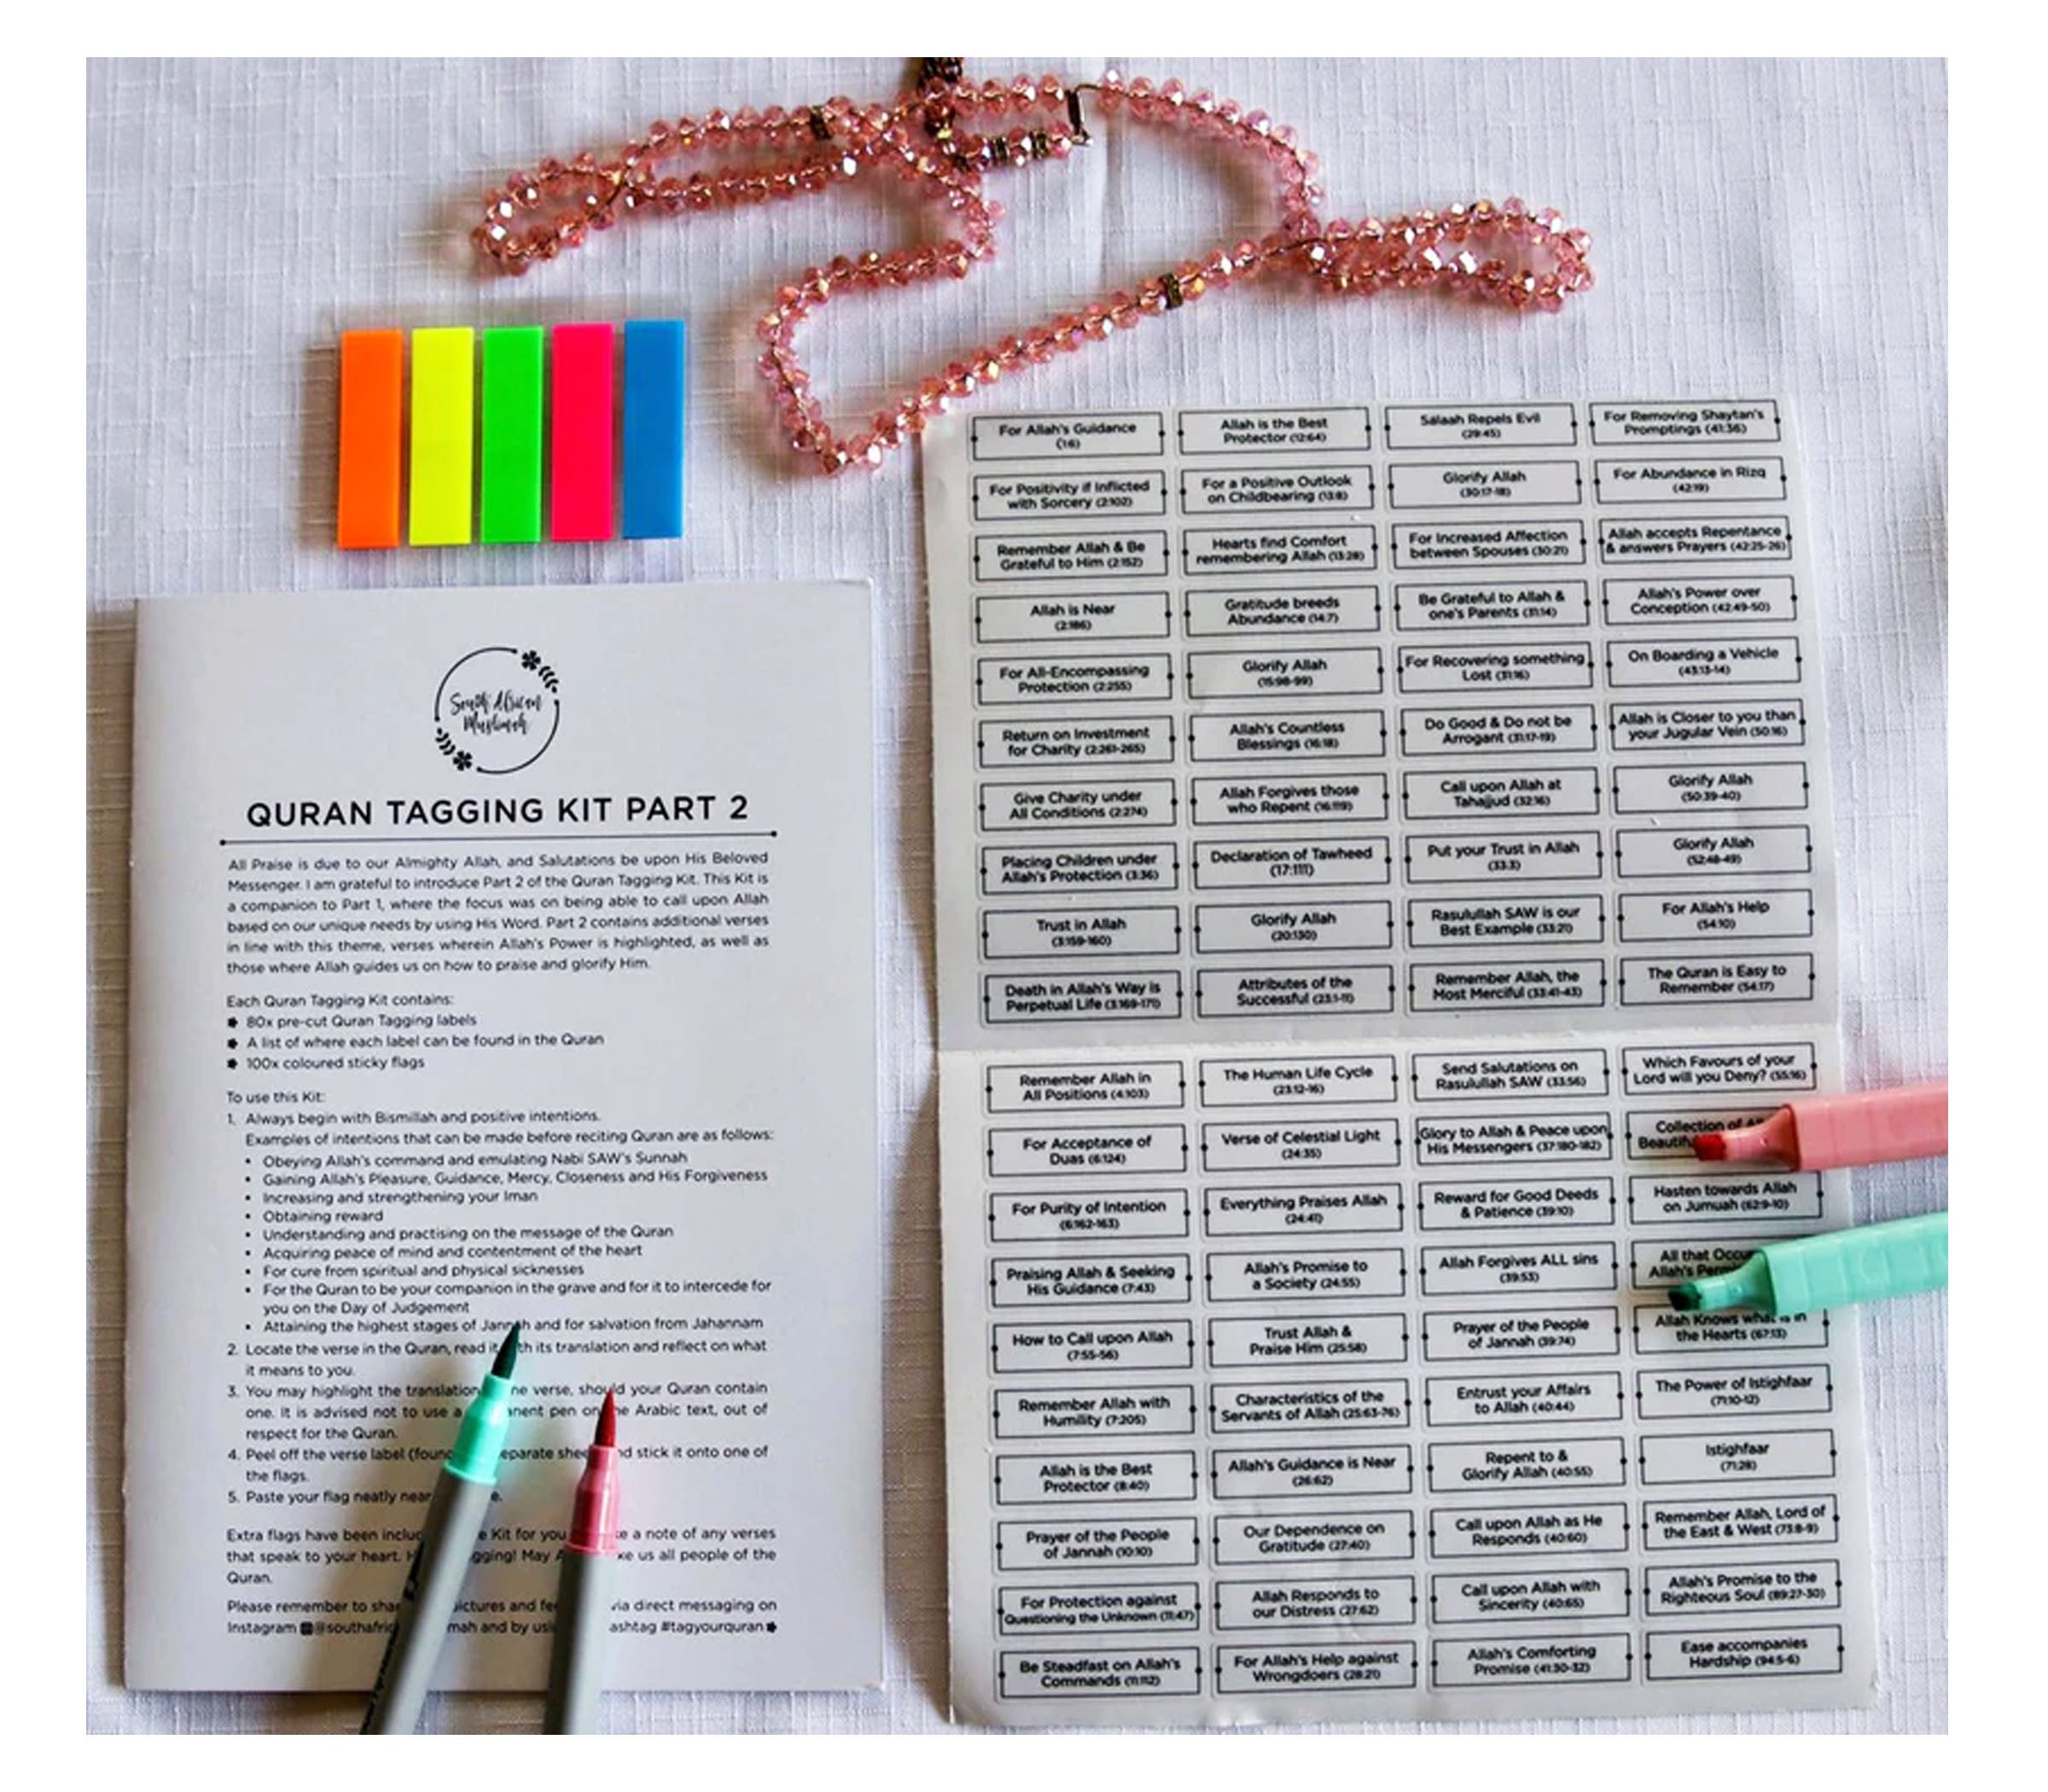 South African
Muslimah
QURAN TAGGING KIT PART 2
All Praise is due to our Almighty Allah, and Salutations be upon His Beloved
Messenger. I am grateful to introduce Part 2 of the Quran Tagging Kit. This Kit is
a companion to Part 1, where the focus was on being able to call upon Allah
based on our unique needs by using His Word. Part 2 contains additional verses
in line with this theme, verses wherein Allah's Power is highlighted, as well as
those where Allah guides us on how to praise and glorify Him.
Each Quran Tagging Kit contains:
80x pre-cut Quran Tagging labels
A list of where each label can be found in the Quran
100x coloured sticky flags
To use this Kit:
1. Always begin with Bismillah and positive intentions.
Examples of intentions that can be made before reciting Quran are as follows:
• Obeying Allah's command and emulating Nabi SAW's Sunnah
• Gaining Allah's Pleasure, Guidance, Mercy, Closeness and His Forgiveness
• Increasing and strengthening your Iman
• Obtaining reward
• Understanding and practising on the message of the Quran
• Acquiring peace of mind and contentment of the heart
• For cure from spiritual and physical sicknesses
• For the Quran to be your companion in the grave and for it to intercede for
you on the Day of Judgement
• Attaining the highest stages of Jannah and for salvation from Jahannam
2. Locate the verse in the Quran, read it its translation and reflect on what
it means to you.
3. You may highlight the translation verse, should your Quran contain
one. It is advised not to use a on Arabic text, out of
respect for the Quran.
4. Peel off the verse label stick it onto one of
the flags.
5. Paste your flag neatly near
Extra flags have been Kit for you a note of any verses
that speak to your heart. May us all people of the
Quran.
Please remember to via direct messaging on
Instagram and by #tagyourquran
For Allah's Guidance
(1:6)
For Positivity if Inflicted
with Sorcery (2:102)
Remember Allah & Be
Grateful to Him (2:152)
Allah is Near
(2:186)
For All-Encompassing
Protection (2:255)
Return on Investment
for Charity (2:261-265)
Give Charity under
All Conditions (2:274)
Placing Children under
Allah's Protection (3:36)
Trust in Allah
(3:159-160)
Death in Allah's Way is
Perpetual Life (3:169-171)
Allah is the Best
Protector (12:64)
For a Positive Outlook
on Childbearing (13:8)
Hearts find Comfort
remembering Allah (13:28)
Gratitude breeds
Abundance (14:7)
Glorify Allah
(15:98-99)
Allah's Countless
Blessings (16:18)
Allah Forgives those
who Repent (16:119)
Declaration of Tawheed
(17:111)
Glorify Allah
(20:130)
Attributes of the
Successful (23:1-11)
Salaah Repels Evil
(29:45)
Glorify Allah
(30:17-18)
For Increased Affection
between Spouses (30:21)
Be Grateful to Allah &
one's Parents (31:14)
For Recovering something
Lost (31:16)
Do Good & Do not be
Arrogant (31:17-19)
Call upon Allah at
Tahajjud (32:16)
Put your Trust in Allah
(33:3)
Rasulullah SAW is our
Best Example (33:21)
Remember Allah, the
Most Merciful (33:41-43)
For Removing Shaytan's
Promptings (41:36)
For Abundance in Rizq
(42:19)
Allah accepts Repentance
& answers Prayers (42:25-26)
Allah's Power over
Conception (42:49-50)
On Boarding a Vehicle
(43:13-14)
Allah is Closer to you than
your Jugular Vein (50:16)
Glorify Allah
(50:39-40)
Glorify Allah
(52:48-49)
For Allah's Help
(54:10)
The Quran is Easy to
Remember (54:17)
Remember Allah in
All Positions (4:103)
For Acceptance of
Duas (6:124)
For Purity of Intention
(6:162-163)
Praising Allah & Seeking
His Guidance (7:43)
How to Call upon Allah
(7:55-56)
Remember Allah with
Humility (7:205)
Allah is the Best
Protector (8:40)
Prayer of the People
of Jannah (10:10)
For Protection against
Questioning the Unknown (11:47)
Be Steadfast on Allah's
Commands (11:112)
The Human Life Cycle
(23:12-16)
Verse of Celestial Light
(24:35)
Everything Praises Allah
(24:41)
Allah's Promise to
a Society (24:55)
Trust Allah &
Praise Him (25:58)
Characteristics of the
Servants of Allah (25:63-76)
Allah's Guidance is Near
(26:62)
Our Dependence on
Gratitude (27:40)
Allah Responds to
our Distress (27:62)
For Allah's Help against
Wrongdoers (28:21)
Send Salutations on
Rasulullah SAW (33:56)
Glory to Allah & Peace upon
His Messengers (37:180-182)
Reward for Good Deeds
& Patience (39:10)
Allah Forgives ALL sins
(39:53)
Prayer of the People
of Jannah (39:74)
Entrust your Affairs
to Allah (40:44)
Repent to &
Glorify Allah (40:55)
Call upon Allah as He
Responds (40:60)
Call upon Allah with
Sincerity (40:65)
Allah's Comforting
Promise (41:30-32)
Which Favours of your
Lord will you Deny? (55:16)
Collection of
Hasten towards Allah
on Jumuah (62:9-10)
All that
Allah's
Allah Knows what is in
the Hearts (67:13)
The Power of Istighfaar
(71:10-12)
Istighfaar
(71:28)
Remember Allah, Lord of
the East & West (73:8-9)
Allah's Promise to the
Righteous Soul (89:27-30)
Ease accompanies
Hardship (94:5-6)